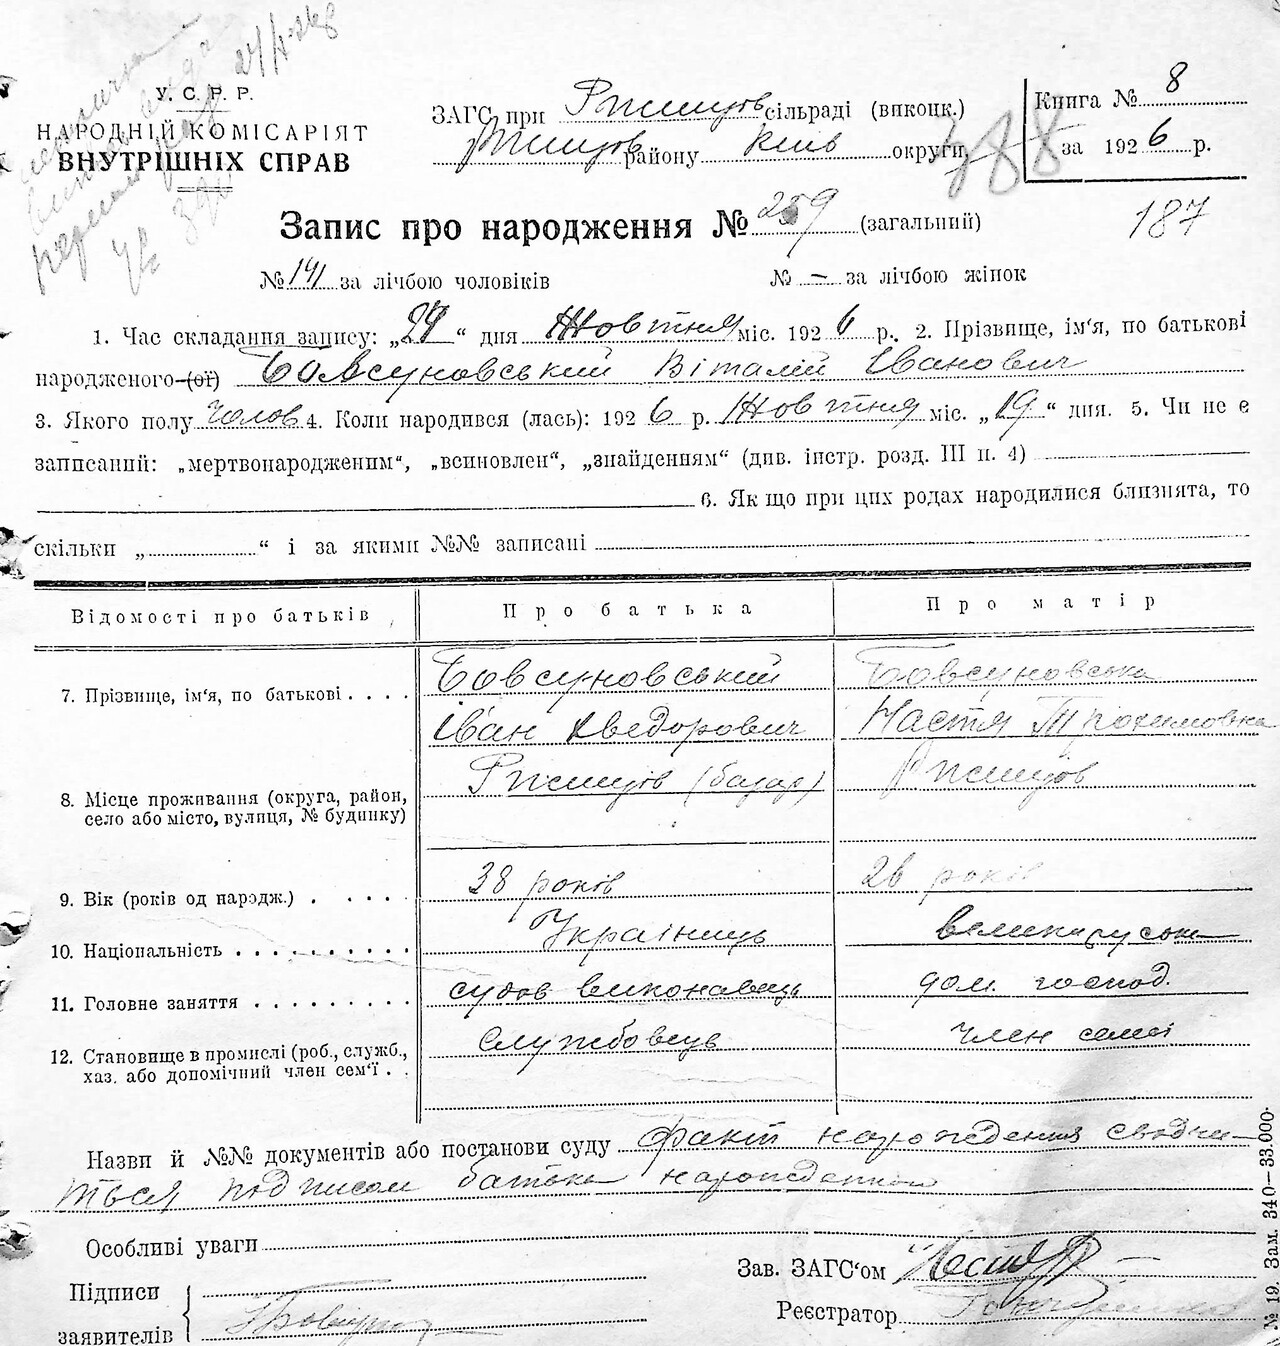 У. С. Р. Р.
НАРОДНІЙ КОМІСАРІЯТ
ВНУТРІШНІХ СПРАВ
ЗАГС при Ржищів сільраді (виконк.)
Ржищів району Київ округи
Книга № 8
за 1926 р.
388
187
Запис про народження № 259 (загальний)
№ 141 за лічбою чоловіків № — за лічбою жінок
1. Час складання запису: „29“ дня Жовтня міс. 1926 р. 2. Прізвище, ім'я, по батькові
народженого (ої) Бовсуновський Віталій Іванович
3. Якого полу Чолов 4. Коли народився (лась): 1926 р. Жовтня міс. „19“ дня. 5. Чи не є
записаний: „мертвонародженим“, „всиновлен“, „знайденням“ (див. інстр. розд. III п. 4)
6. Якщо при цих родах народилися близнята, то
скільки „ “ і за якими №№ записані
Відомості про батьків Про батька Про матір
7. Прізвище, ім'я, по батькові Бовсуновський Бовсуновська
Іван Хведорович Настя Трохимовна
8. Місце проживання (округа, район, село або місто, вулиця, № будинку) Ржищів (базар) Ржищів
9. Вік (років од народж.) 38 років 26 років
10. Національність Українць великоруска
11. Головне заняття судов виконавець дом. господ.
12. Становище в промислі (роб., служб., хаз. або допомічний член сем'ї Службовець Член семї
Назви й №№ документів або постанови суду факт народження сводчи-
ться подписом батька народженого
Особливі уваги
Підписи
заявителів
Зав. ЗАГС'ом
Реєстратор
№ 19. Зам. 340—33.000.